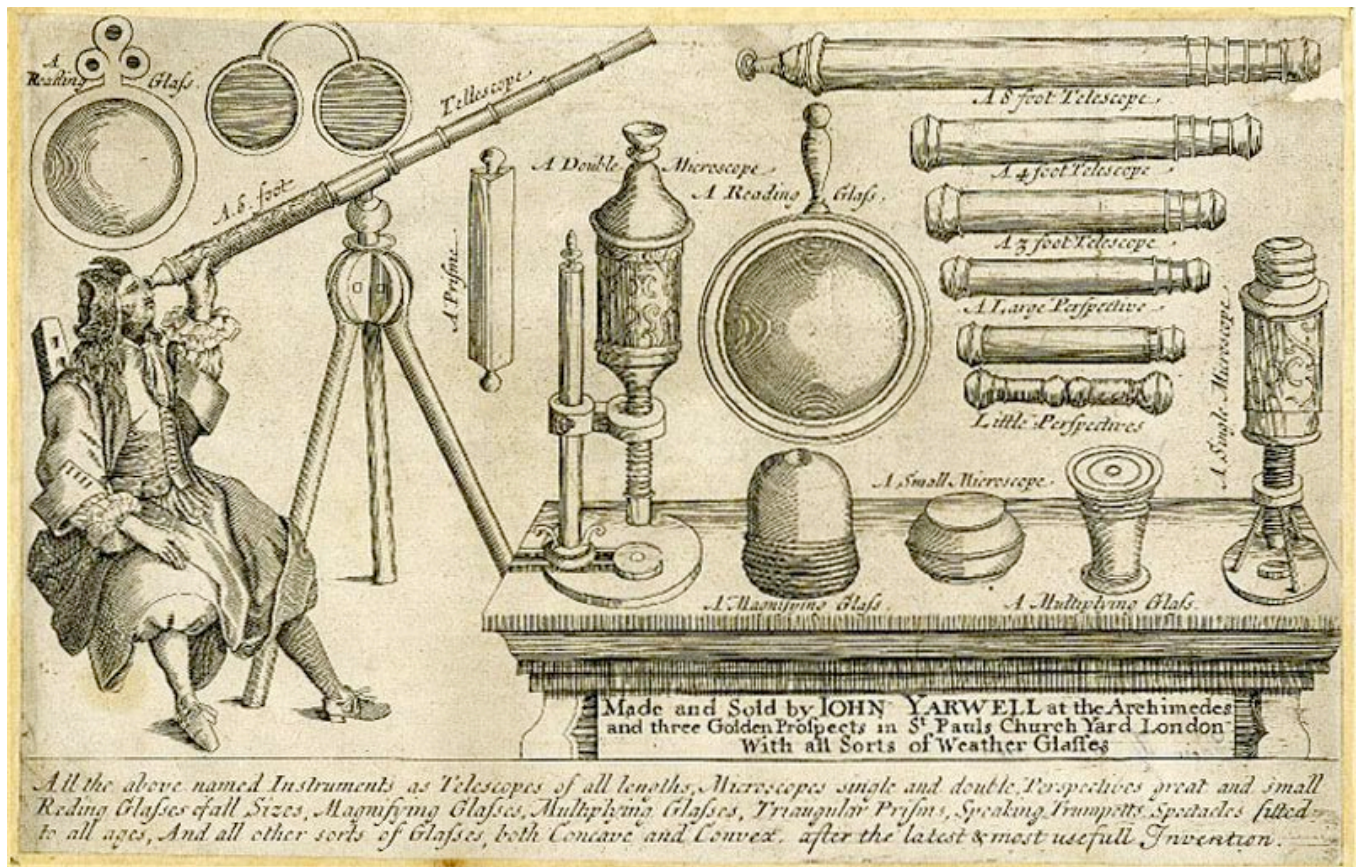 A
Reading Glaſs.
A 6 foot Tellescope
A Priſme
A Double Microscope
A Reading Glaſs.
A 8 foot Telescope.
A 4 foot Telescope
A 3 foot Telescope
A Large Perſpective
Little Perſpectives
A Single Microscope
A Small Microscope
A Magnifying Glaſs.
A Multiplying Glaſs.
Made and Sold by IOHN YARWELL at the Archimedes
and three Golden Proſpects in St. Pauls Church Yard London
With all Sorts of Weather Glaſſes
All the above named Instruments as Telescopes of all lengths, Microscopes single and double, Perspectives great and small
Reding Glaſſes of all Sizes, Magnifying Glaſſes, Multiplying Glaſſes, Triangular Priſms, Speaking Trumpetts, Spectacles fitted
to all ages, And all other sorts of Glaſſes, both Concave and Convex. after the latest & most usefull Invention.